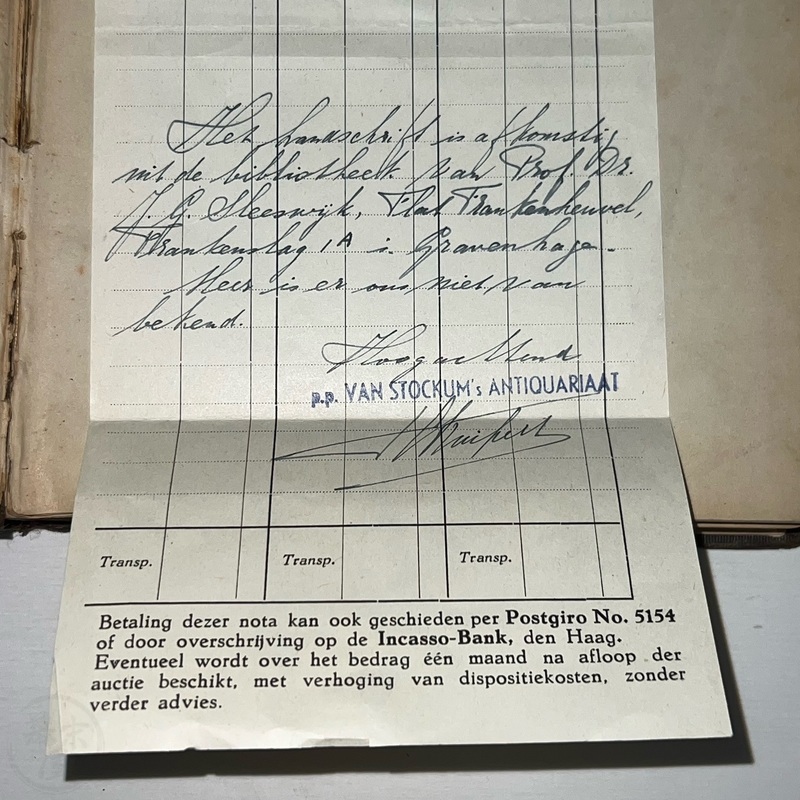 Het handschrift is afkomstig
uit de bibliotheek van Prof. Dr.
J. G. Sleeswijk, Flat Frankenheuvel,
Frankenslag 1A 's Gravenhage.
Meer is er ons niet van
bekend.
Hoogachtend
p.p. VAN STOCKUM's ANTIQUARIAAT
Transp. Transp. Transp.
Betaling dezer nota kan ook geschieden per Postgiro No. 5154
of door overschrijving op de Incasso-Bank, den Haag.
Eventueel wordt over het bedrag één maand na afloop der
auctie beschikt, met verhoging van dispositiekosten, zonder
verder advies.